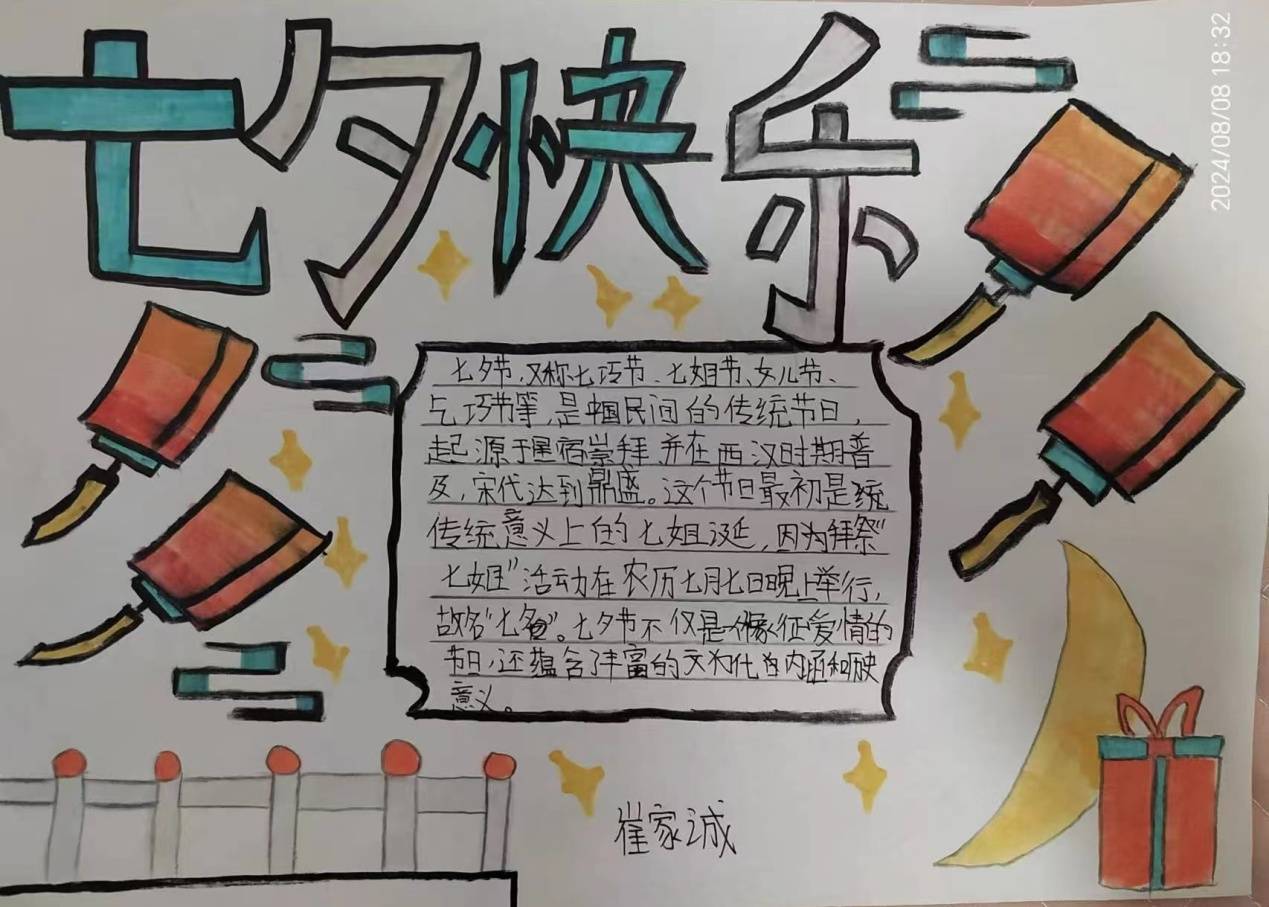 七夕快乐
2024/08/08 18:32
七夕节,又称七巧节、七姐节、女儿节、
乞巧节等,是中国民间的传统节日,
起源于星宿崇拜并在西汉时期普
及,宋代达到鼎盛。这个节日最初是
传统意义上的七姐诞,因为拜祭“
七姐”活动在农历七月七日晚上举行,
故名“七夕”。七夕节不仅是一个象征爱情的
节日,还蕴含了丰富的文化内函和历史
意义。
崔家诚